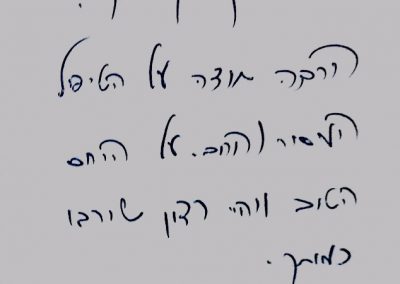 הרבה תודה על הטיפול
המסור על היחס
הטוב ויהי רצון שירבו
כמותך.